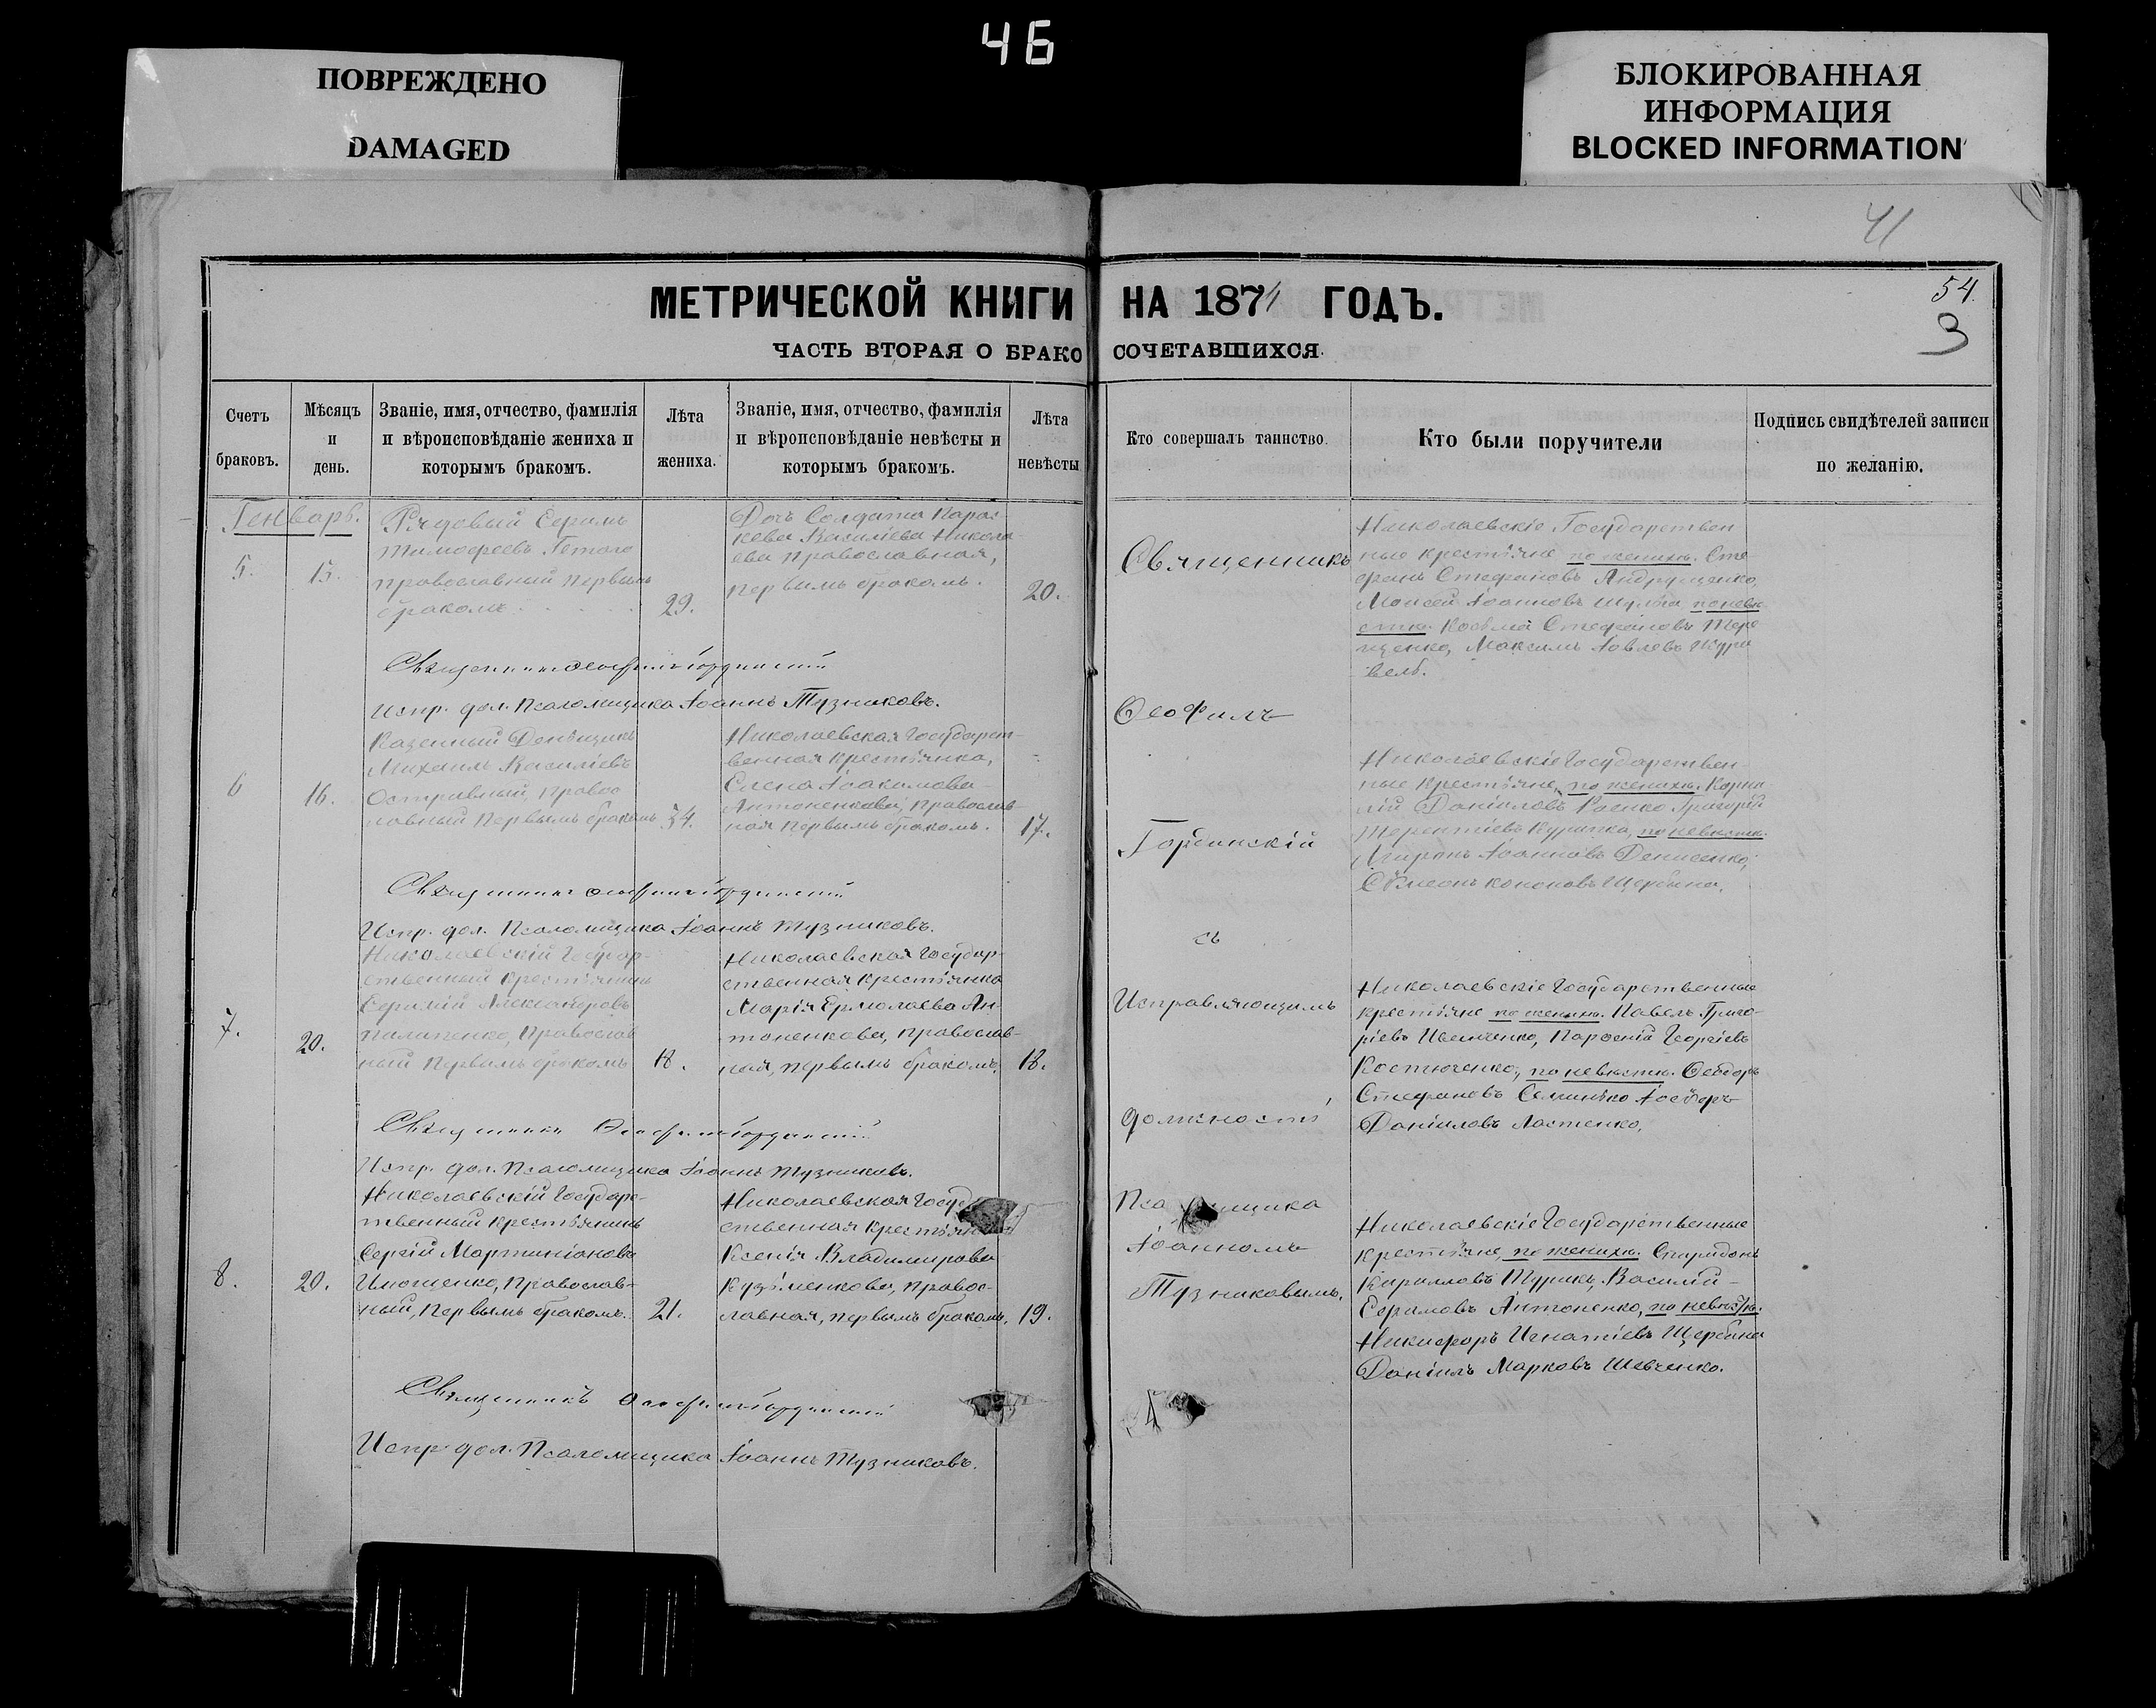 46
ПОВРЕЖДЕНО
DAMAGED
БЛОКИРОВАННАЯ
ИНФОРМАЦИЯ
BLOCKED INFORMATION
41
54.
3
МЕТРИЧЕСКОЙ КНИГИ НА 1871 ГОДЪ.
ЧАСТЬ ВТОРАЯ О БРАКОСОЧЕТАВШИХСЯ.
Счетъ
браковъ.
Мѣсяцъ
и
день.
Званіе, имя, отчество, фамилія
и вѣроисповѣданіе жениха и
которымъ бракомъ.
Лѣта
жениха.
Званіе, имя, отчество, фамилія
и вѣроисповѣданіе невѣсты и
которымъ бракомъ.
Лѣта
невѣсты
Кто совершалъ таинство.
Кто были поручители
Подпись свидѣтелей записи
по желанію.
Генварь.
5.
15.
Рядовый
Тимофеевъ
православный первымъ
бракомъ
29.
Дочь Солдата Парас-
кева Василіева Никола-
ева православная,
первымъ бракомъ.
20.
Священникъ
Николаевскіе Государствен
ные крестьяне по женихѣ. Сте-
фанъ Стефановъ Андрущенко,
Моисей Іоанновъ Шульга по невѣ
стѣ. Косьма Стефановъ Тере
щенко, Максимъ Іовлевъ Жура
вель.
Священникъ Ѳеофилъ Гординскій
Испр. дол. Псаломщика Іоаннъ Тузниковъ.
Ѳеофилъ
6
16.
Казенный Деньщикъ
Михаилъ Василіевъ
правос
лавный первымъ бракомъ
34.
Николаевская Государст-
венная крестьянка,
Елена Іоакимова
Антоненкова, православ-
ная первымъ бракомъ.
17.
Гординскій
Николаевскіе Государствен-
ные крестьяне, по женихѣ. Корни
лій Даніиловъ Григорій
Терентіевъ по невѣстѣ.
Іоанновъ Денисенко,
Сѵмеонъ Кононовъ Щербина.
Священникъ Ѳеофилъ Гординскій
Испр. дол. Псаломщика Іоаннъ Тузниковъ.
съ
7.
20.
Николаевскій Государ-
ственный крестьянинъ
Александровъ
Пилипенко, Православ
ный первымъ бракомъ
18.
Николаевская Государ-
ственная крестьянка
Марія Ермолаева Ан-
тоненкова, православ-
ная, первымъ бракомъ.
18.
Исправляющимъ
Николаевскіе Государственные
крестьяне по женихѣ. Павелъ Григо-
ріевъ Парфеній Георгіевъ
Костюченко, по невѣстѣ. Ѳеодоръ
Стефановъ
Даніиловъ
должность
Священникъ Ѳеофилъ Гординскій
Испр. дол. Псаломщика Іоаннъ Тузниковъ.
8.
20.
Николаевскій Государс-
твенный крестьянинъ
Сергій Мартиніановъ
Православ-
ный, первымъ бракомъ.
21.
Николаевская Госуд
ственная крестьянка
Ксенія Владимирова
Кузьменкова, правос-
лавная, первымъ бракомъ.
19.
Пса щика
Іоанномъ
Тузниковымъ.
Николаевскіе Государственные
крестьяне, по женихѣ. Спиридонъ
Кирилловъ Турикъ, Василій
Ефимовъ Антоненко, по невѣстѣ.
Никифоръ Игнатіевъ Щербина
Даніилъ Марковъ Шевченко.
Священникъ Ѳеофилъ Гординскій
Испр. дол. Псаломщика Іоаннъ Тузниковъ.